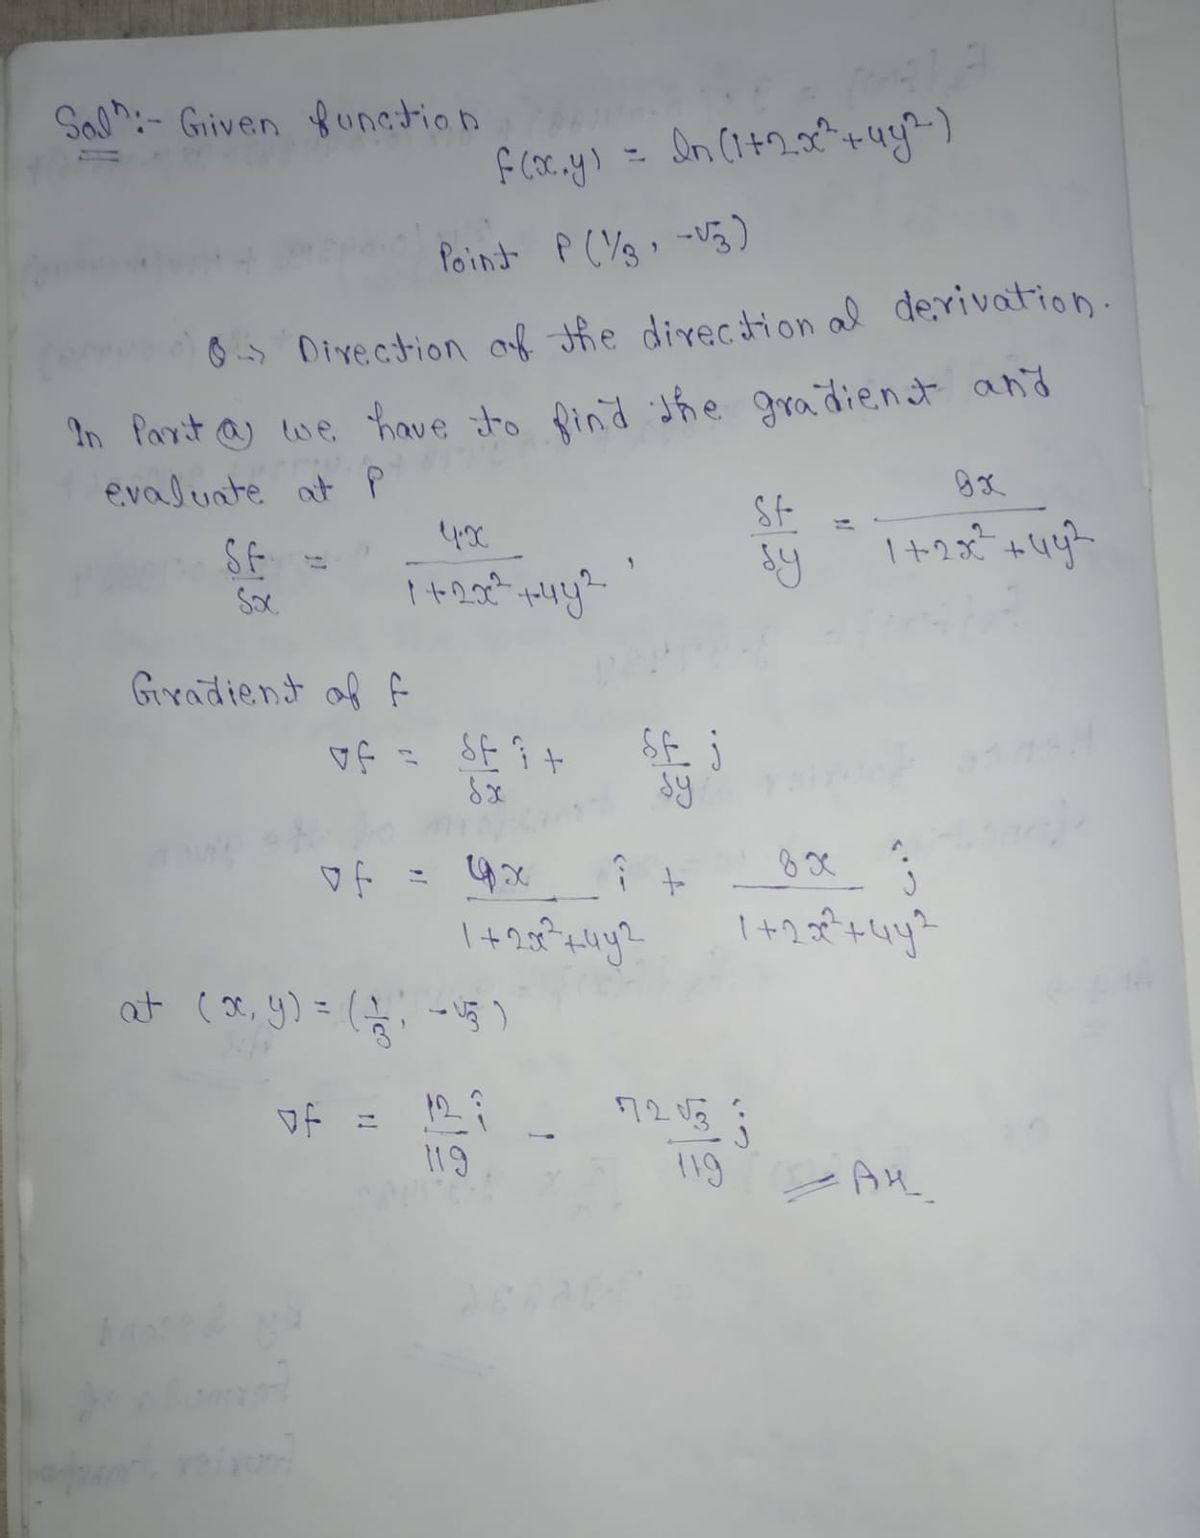 Solⁿ:- Given function
f(x,y) = ln(1+2x²+4y²)
Point P(1/3, -√3)
θ → Direction of the directional derivation.
In Part (a) we have to find the gradient and
evaluate at P
δf/δx = 4x/(1+2x²+4y²), δf/δy = 8x/(1+2x²+4y²)
Gradient of f
∇f = δf/δx î + δf/δy j
∇f = 4x/(1+2x²+4y²) î + 8x/(1+2x²+4y²) ĵ
at (x,y) = (1/3, -√3)
∇f = 12/119 î - 72√3/119 ĵ